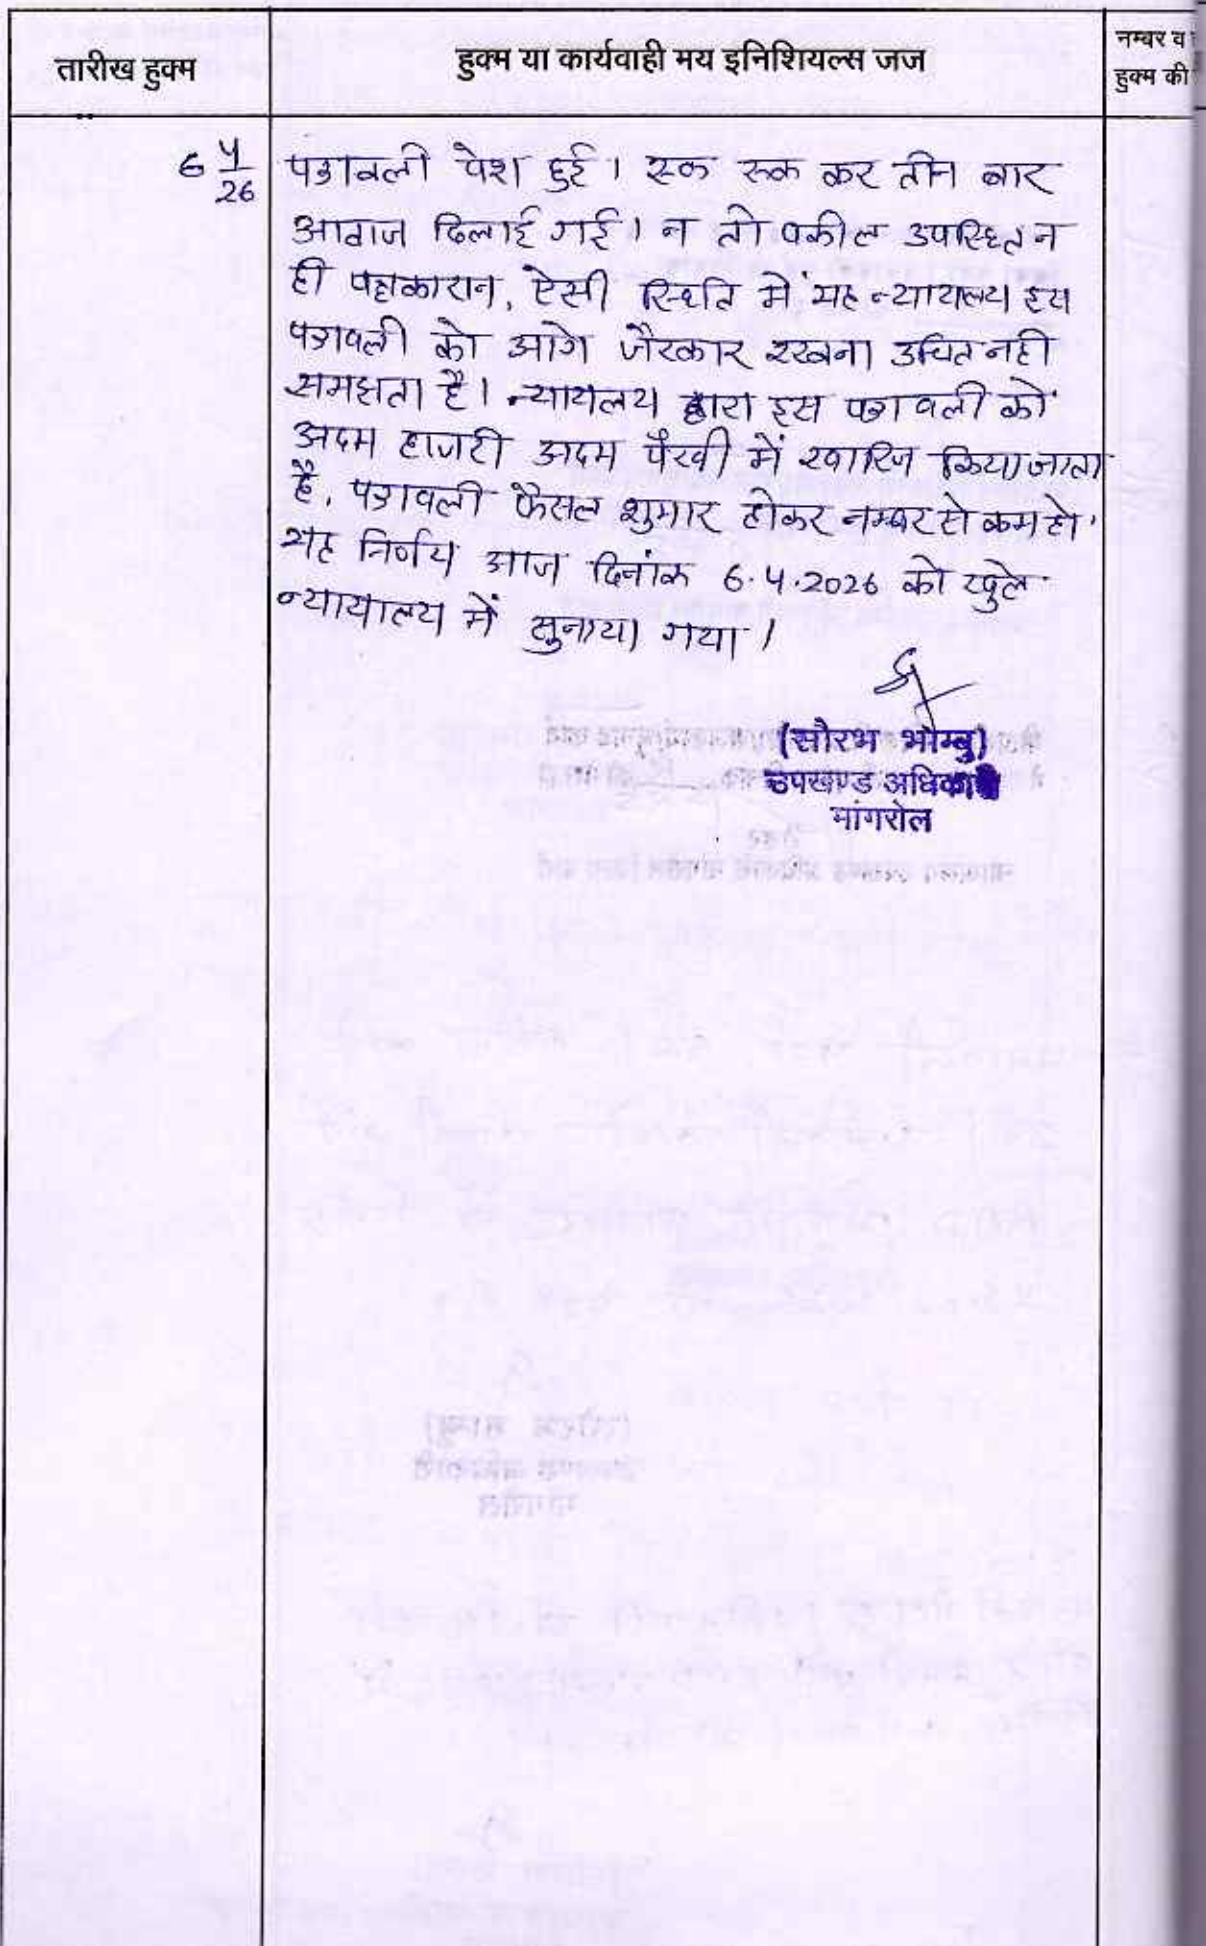 तारीख हुक्म
हुक्म या कार्यवाही मय इनिशियल्स जज
नम्बर व
हुक्म की
6 4/26
पत्रावली पेश हुई। रूक रूक कर तीन बार
आवाज दिलाई गई। न तो वकील उपस्थित न
ही पक्षकारान, ऐसी स्थिति में यह न्यायालय इस
पत्रावली को आगे जैरकार रखना उचित नही
समझता है। न्यायलय द्वारा इस पत्रावली को
अदम हाजरी अदम पैरवी में खारिज किया जाता
है, पत्रावली फैसल शुमार होकर नम्बर से कम हो।
यह निर्णय आज दिनांक 6.4.2026 को खुले
न्यायालय में सुनाया गया।
(सौरभ भाम्बु)
उपखण्ड अधिकारी
मांगरोल